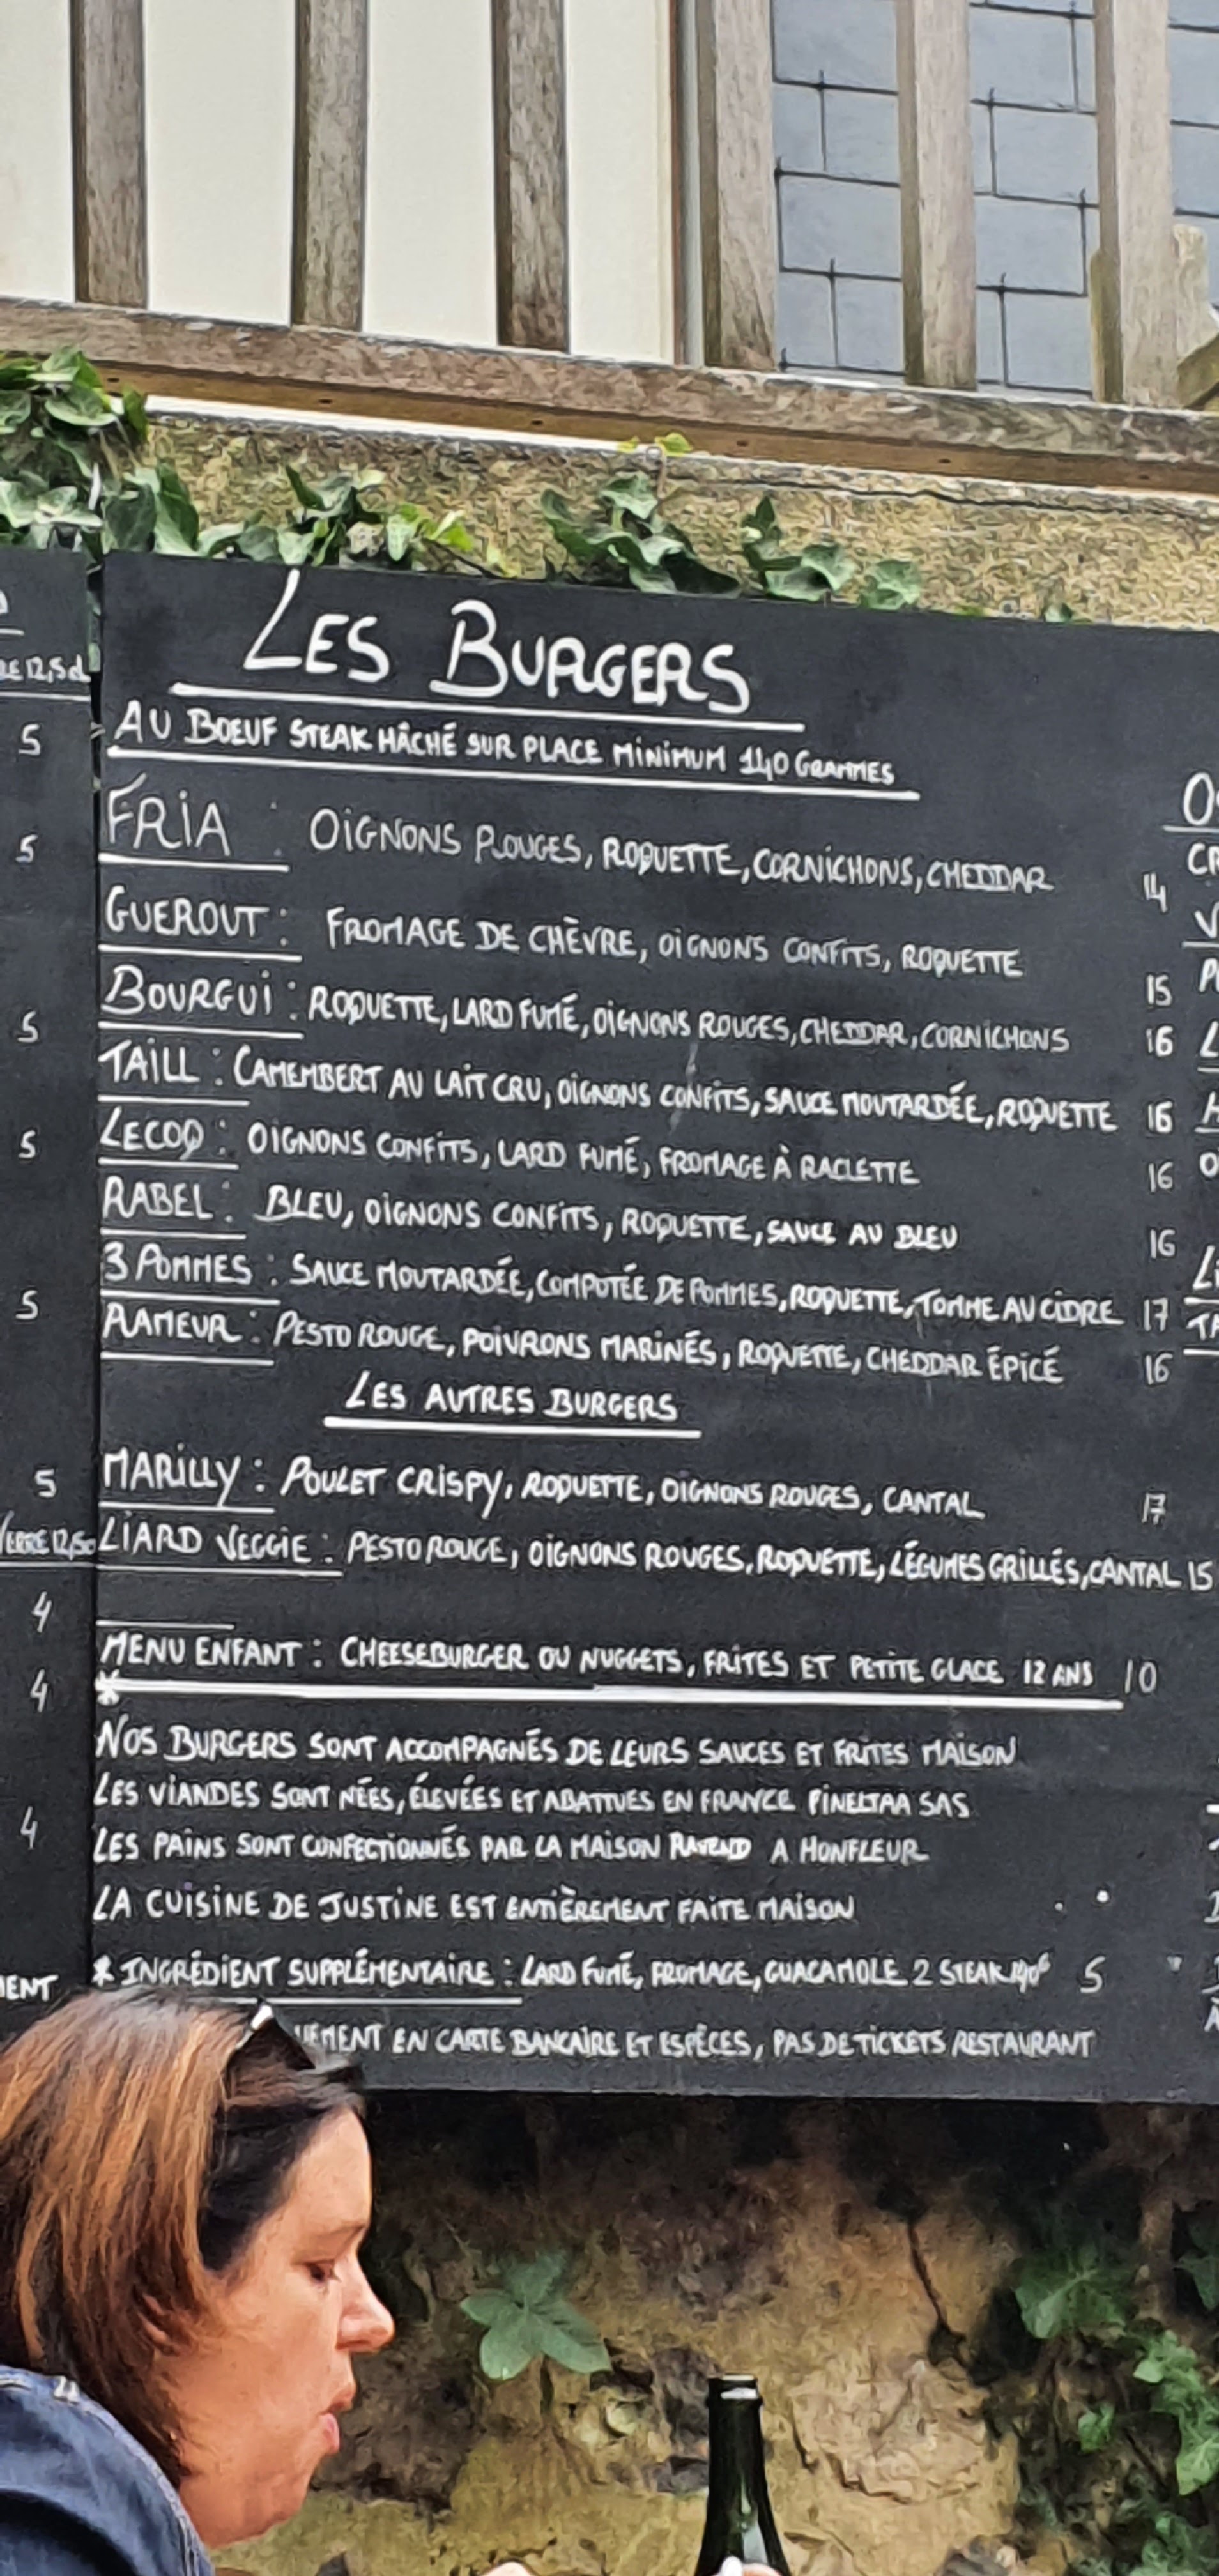 LES BURGERS
AU BOEUF STEAK HÂCHÉ SUR PLACE MINIMUM 140 GRAMMES
FRIA : OIGNONS ROUGES, ROQUETTE, CORNICHONS, CHEDDAR 14
GUEROUT : FROMAGE DE CHÈVRE, OIGNONS CONFITS, ROQUETTE 15
BOURGUI : ROQUETTE, LARD FUMÉ, OIGNONS ROUGES, CHEDDAR, CORNICHONS 16
TAILL : CAMEMBERT AU LAIT CRU, OIGNONS CONFITS, SAUCE MOUTARDÉE, ROQUETTE 16
LECOQ : OIGNONS CONFITS, LARD FUMÉ, FROMAGE À RACLETTE 16
RABEL : BLEU, OIGNONS CONFITS, ROQUETTE, SAUCE AU BLEU 16
3 POMMES : SAUCE MOUTARDÉE, COMPOTÉE DE POMMES, ROQUETTE, TOMME AU CIDRE 17
RAMEUR : PESTO ROUGE, POIVRONS MARINÉS, ROQUETTE, CHEDDAR ÉPICÉ 16
LES AUTRES BURGERS
MARILLY : POULET CRISPY, ROQUETTE, OIGNONS ROUGES, CANTAL 17
LIARD VEGGIE : PESTO ROUGE, OIGNONS ROUGES, ROQUETTE, LÉGUMES GRILLÉS, CANTAL 15
MENU ENFANT : CHEESEBURGER OU NUGGETS, FRITES ET PETITE GLACE 12 ANS 10
*
NOS BURGERS SONT ACCOMPAGNÉS DE LEURS SAUCES ET FRITES MAISON
LES VIANDES SONT NÉES, ÉLEVÉES ET ABATTUES EN FRANCE SAS
LES PAINS SONT CONFECTIONNÉS PAR LA MAISON A HONFLEUR
LA CUISINE DE JUSTINE EST ENTIÈREMENT FAITE MAISON
* INGRÉDIENT SUPPLÉMENTAIRE : LARD FUMÉ, FROMAGE, GUACAMOLE 2 STEAK 5
EN CARTE BANCAIRE ET ESPÈCES, PAS DE TICKETS RESTAURANT
5
5
5
5
5
5
4
4
4